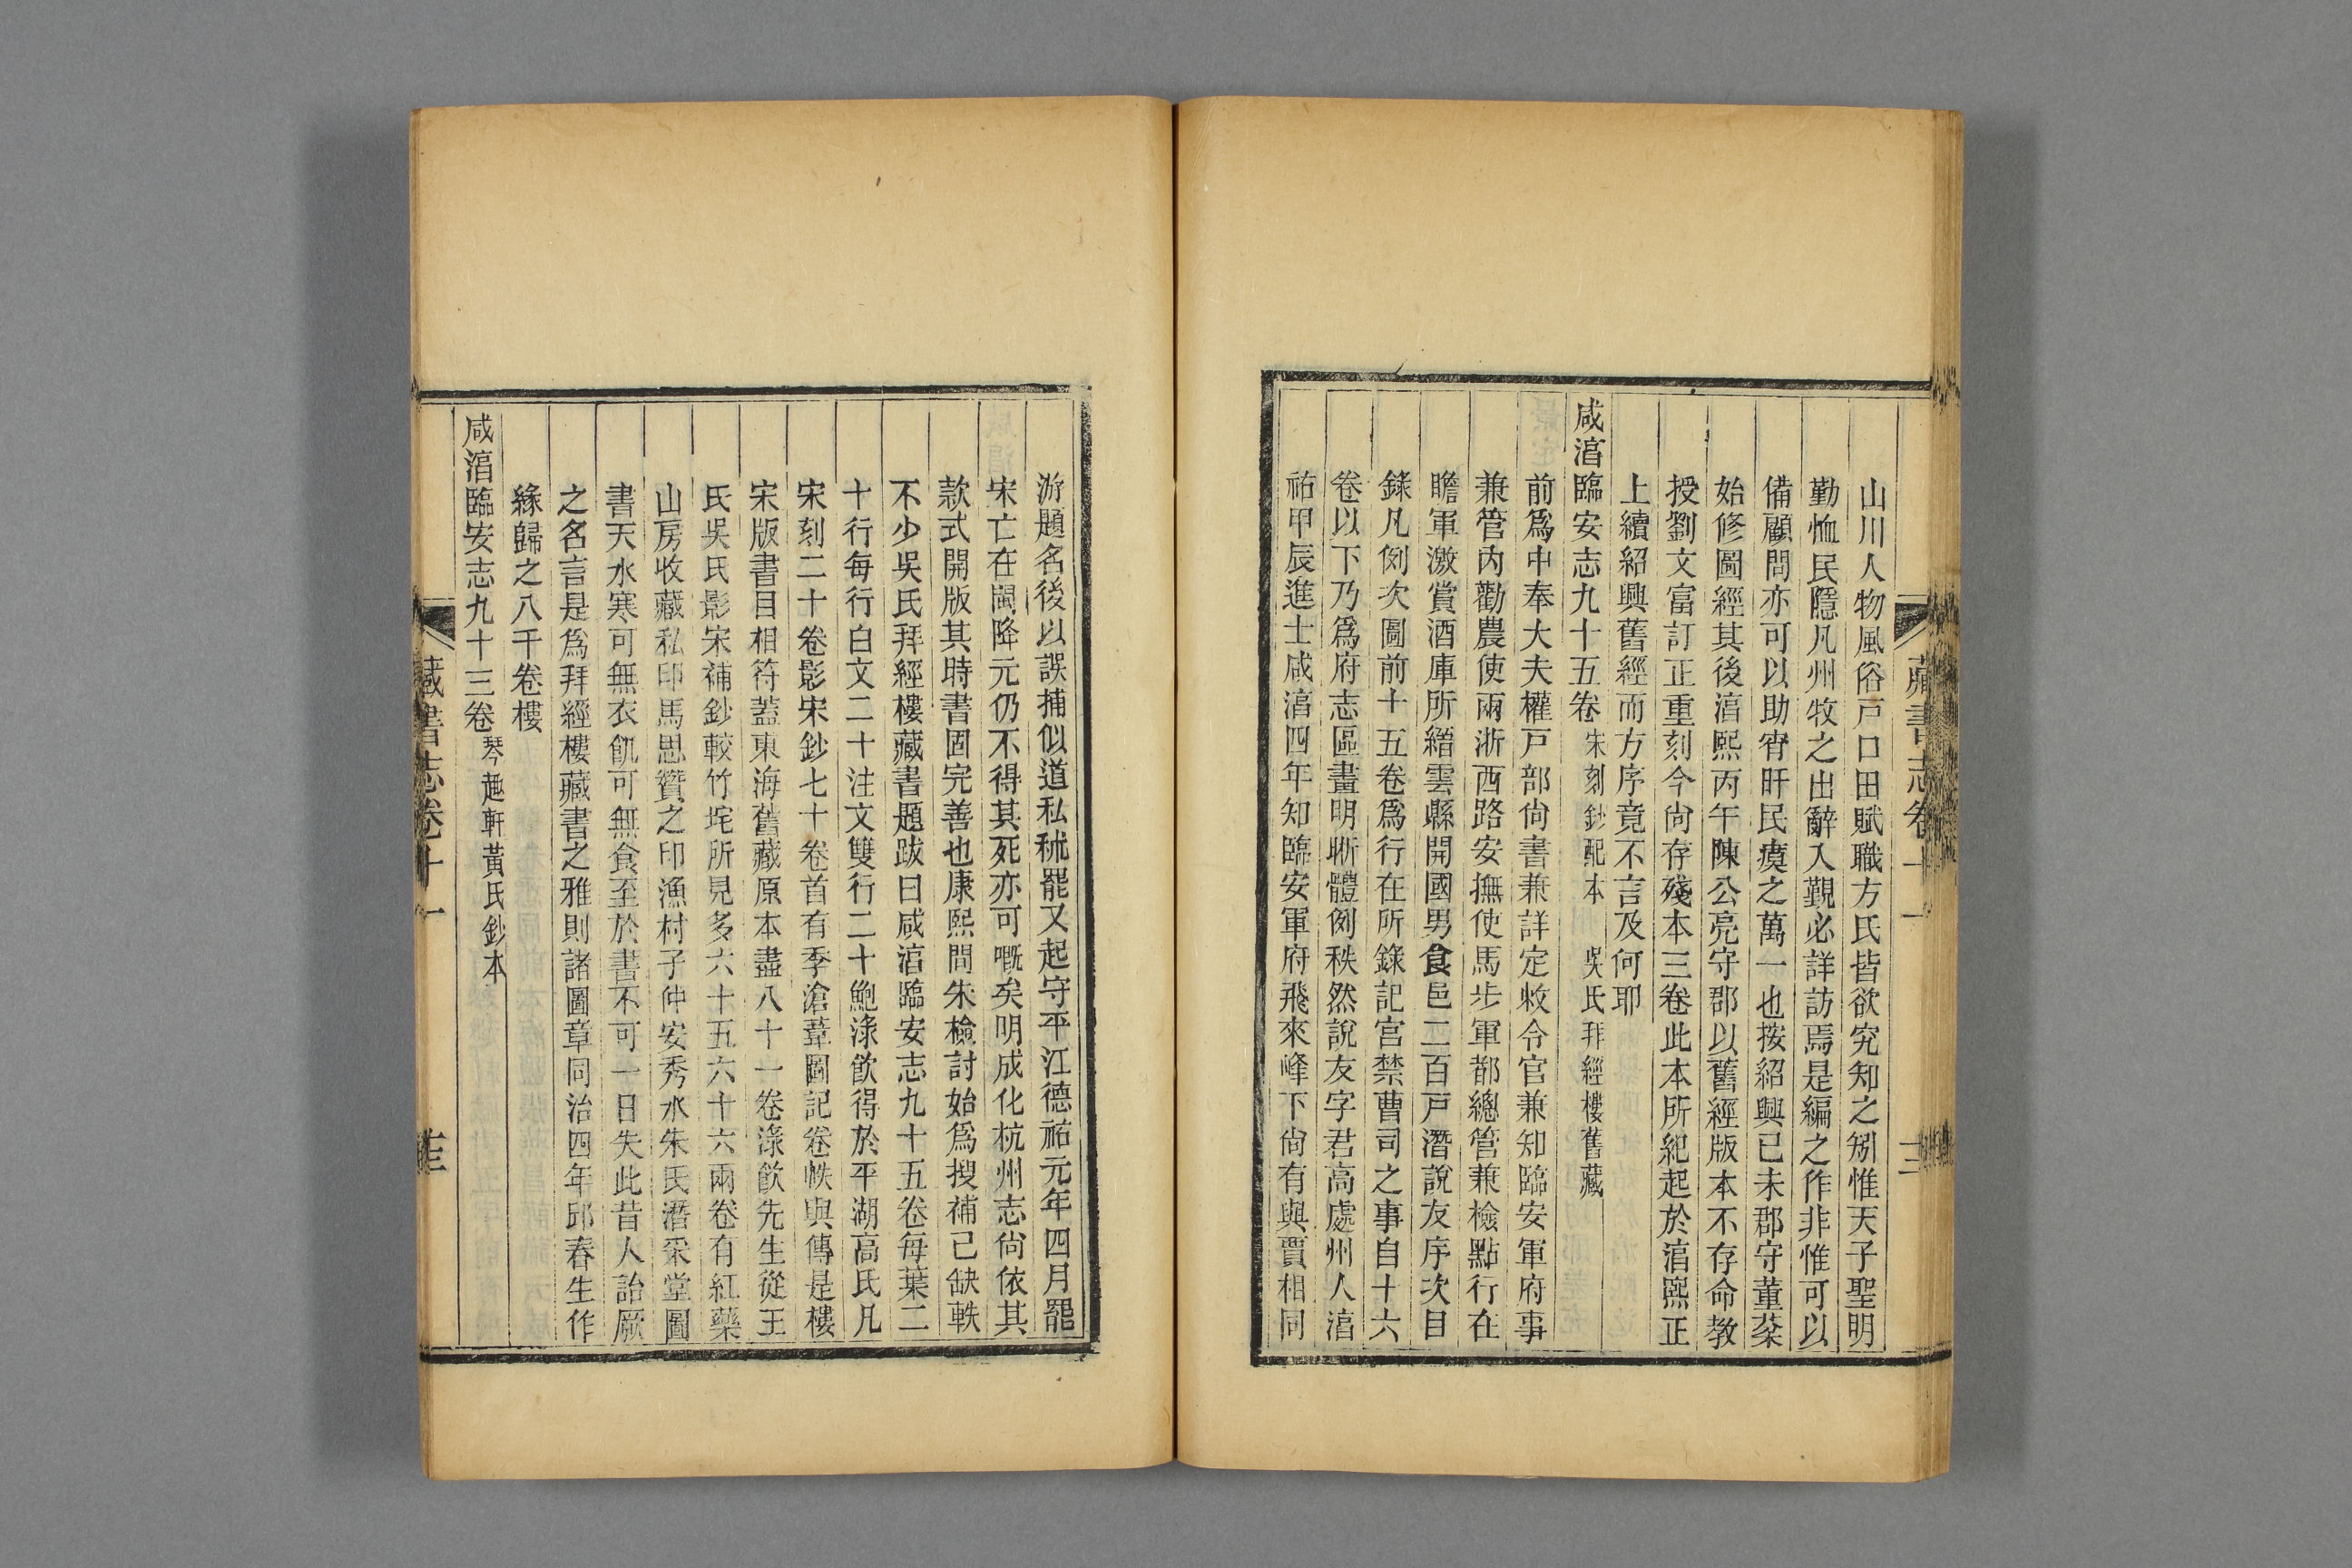 山川人物風俗戸口田賦職方氏皆欲究知之矧惟天子聖明
勤恤民隱凡州牧之出辭入覲必詳訪焉是編之作非惟可以
備顧問亦可以助宵旰民瘼之萬一也按紹興己未郡守董棻
始修圖經其後淳熙丙午陳公亮守郡以舊經版本不存命教
授劉文富訂正重刻今尚存殘本三卷此本所紀起於淳熙正
上續紹興舊經而方序竟不言及何耶
咸淳臨安志九十五卷 宋刻鈔配本 吳氏拜經樓舊藏
前爲中奉大夫權戸部尚書兼詳定敕令官兼知臨安軍府事
兼管內勸農使兩浙西路安撫使馬步軍都總管兼檢點行在
贍軍激賞酒庫所縉雲縣開國男食邑二百戸潛說友序次目
錄凡例次圖前十五卷爲行在所錄記宮禁曹司之事自十六
卷以下乃爲府志區畫明晰體例秩然說友字君高處州人淳
祐甲辰進士咸淳四年知臨安軍府飛來峰下尚有與賈相同
藏書志卷十一
游題名後以誤捕似道私秫罷又起守平江德祐元年四月罷
宋亡在閩降元仍不得其死亦可嘅矣明成化杭州志尚依其
款式開版其時書固完善也康熙間朱檢討始爲搜補已缺軼
不少吳氏拜經樓藏書題跋曰咸淳臨安志九十五卷每葉二
十行每行白文二十注文雙行二十鮑淥飮得於平湖高氏凡
宋刻二十卷影宋鈔七十卷首有季滄葦圖記卷帙與傳是樓
宋版書目相符蓋東海舊藏原本盡八十一卷淥飮先生從王
氏吳氏影宋補鈔較竹垞所見多六十五六十六兩卷有紅藥
山房收藏私印馬思贊之印漁村子仲安秀水朱氏潛采堂圖
書天水寒可無衣飢可無食至於書不可一日失此昔人詒厥
之名言是爲拜經樓藏書之雅則諸圖章同治四年邱春生作
緣歸之八千卷樓
咸淳臨安志九十三卷 琴趣軒黃氏鈔本
藏書志卷十一